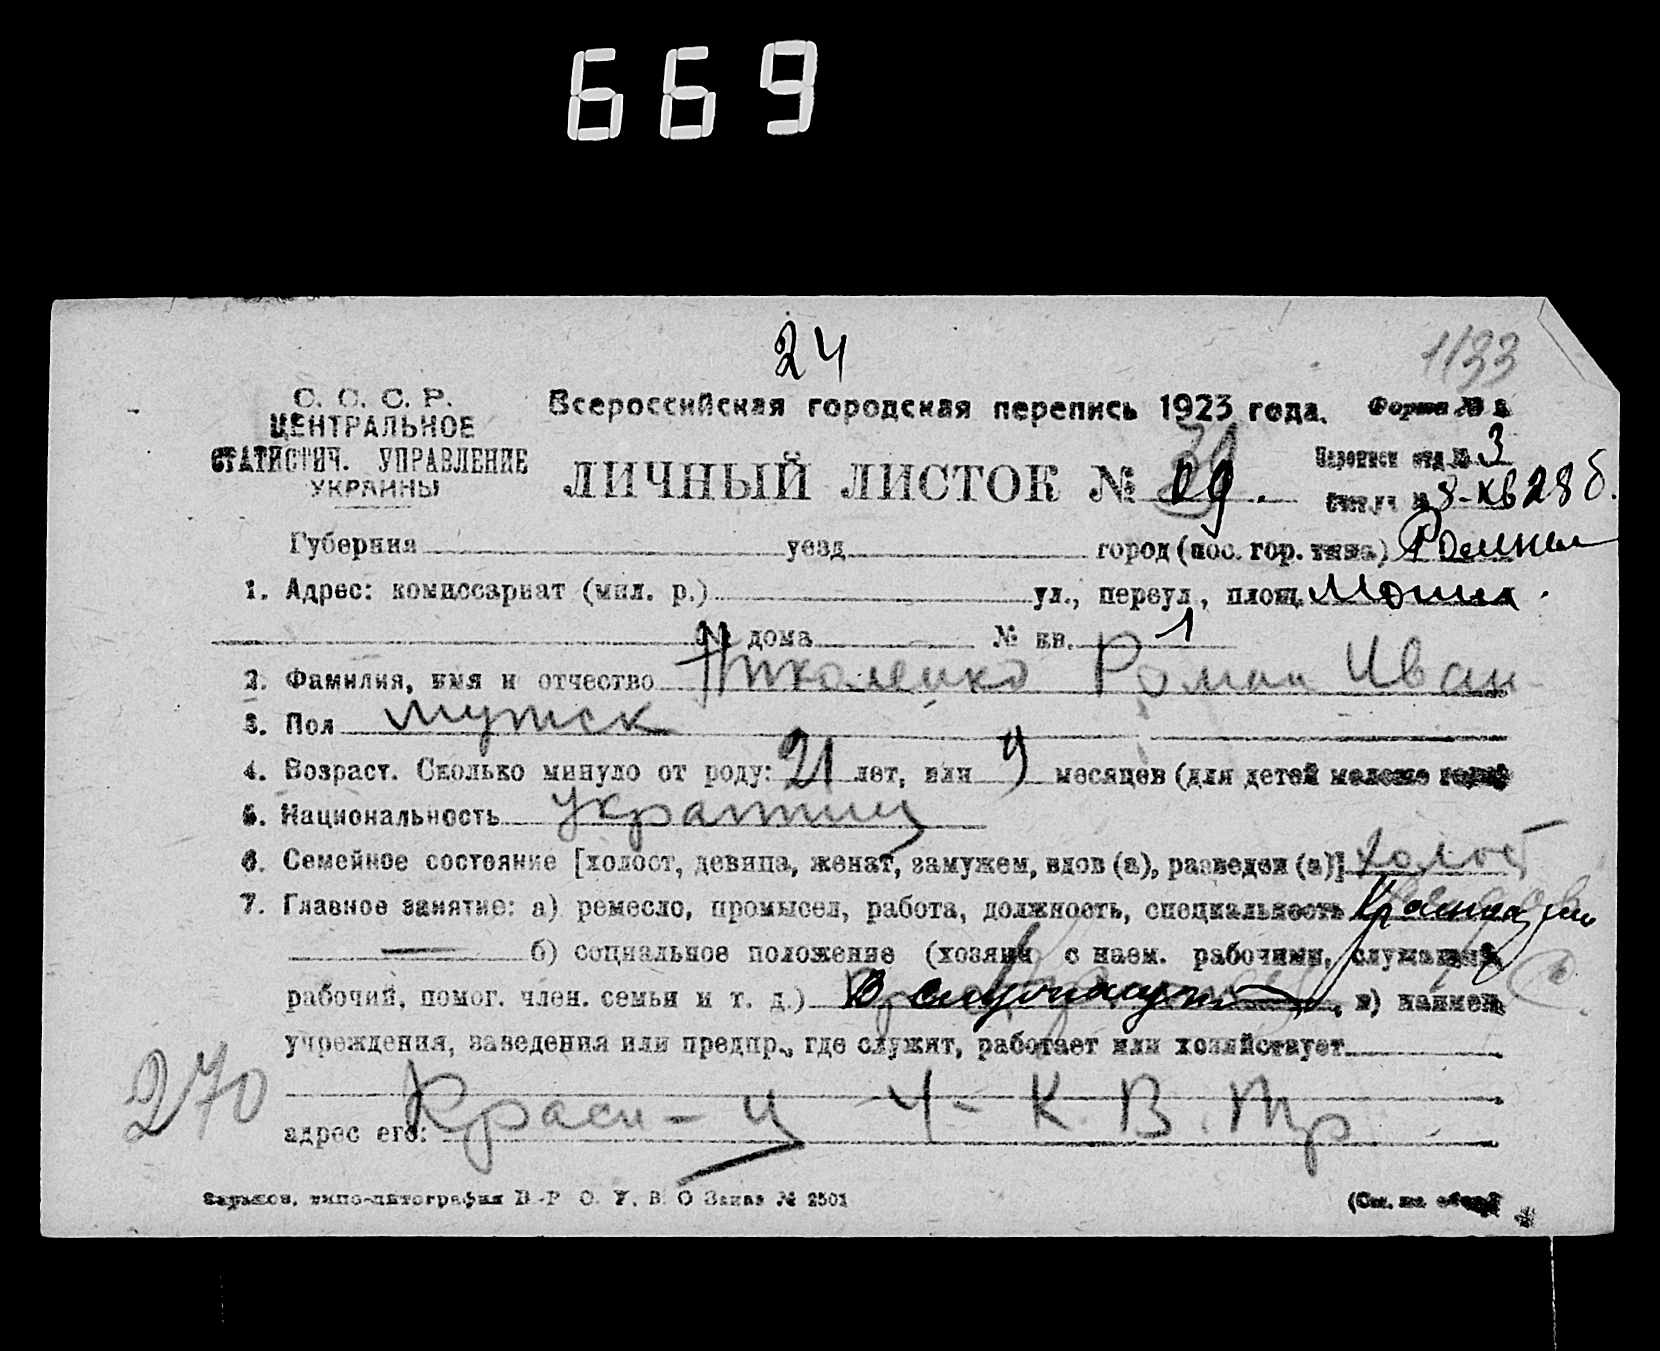 669
24
1/33
С. С. С. Р.
ЦЕНТРАЛЬНОЕ
СТАТИСТИЧ. УПРАВЛЕНИЕ
УКРАИНЫ
Всероссийская городская перепись 1923 года. Форма №
ЛИЧНЫЙ ЛИСТОК №
Переписн отд № 3
8-кв 28 б.
Губерния уезд город (пос. гор. типа) Ромны
1. Адрес: комиссариат (мил. р.) ул., переул, площ.
№ дома № кв. 1
2. Фамилия, имя и отчество Николенко Роман Иван
3. Пол мужск
4. Возраст. Сколько минуло от роду: 21 лет, или 9 месяцев (для детей моложе года)
5. Национальность украинец
6. Семейное состояние [холост, девица, женат, замужем, вдов (а), разведен (а)] холост
7. Главное занятие: а) ремесло, промысел, работа, должность, специальность
б) социальное положение (хозяин с наем. рабочими, служащий,
рабочий, помог. член. семьи и т. д.) в) наимен.
учреждения, заведения или предпр., где служит, работает или хозяйствует
270
адрес его: Красн-ц 4- К. В. Тр
Харьков, типо-литография В-Р О. У. В. О Заказ № 2501
(См. на обор